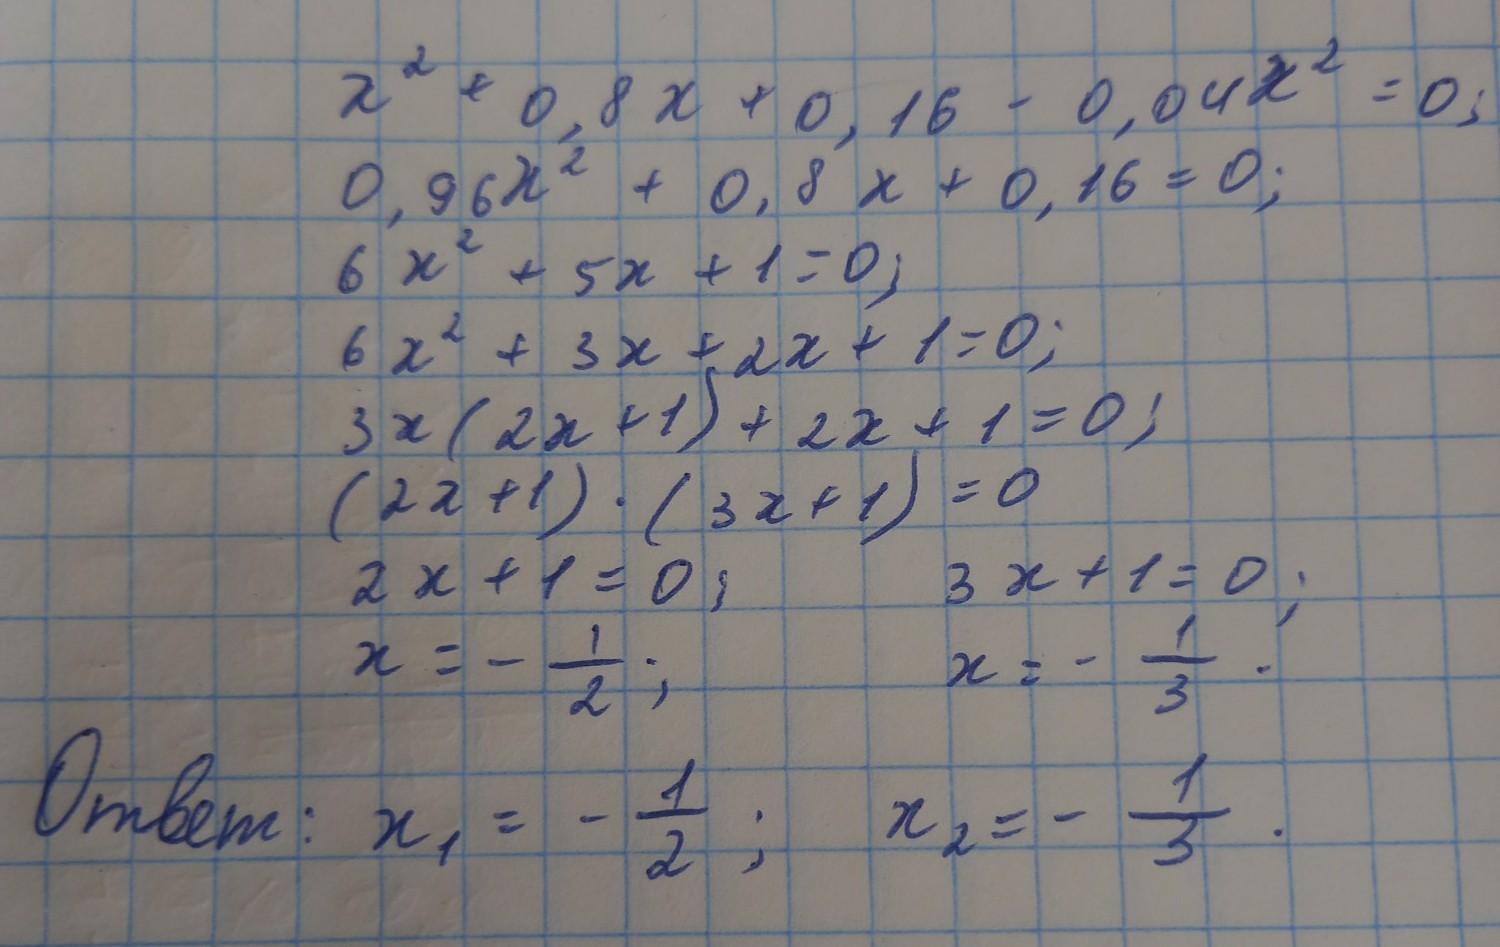 x² + 0,8x + 0,16 - 0,04x² = 0;
0,96x² + 0,8x + 0,16 = 0;
6x² + 5x + 1 = 0;
6x² + 3x + 2x + 1 = 0;
3x(2x+1) + 2x + 1 = 0;
(2x+1) · (3x+1) = 0
2x + 1 = 0; 3x + 1 = 0;
x = - 1/2; x = - 1/3.
Ответ: x₁ = - 1/2; x₂ = - 1/3.